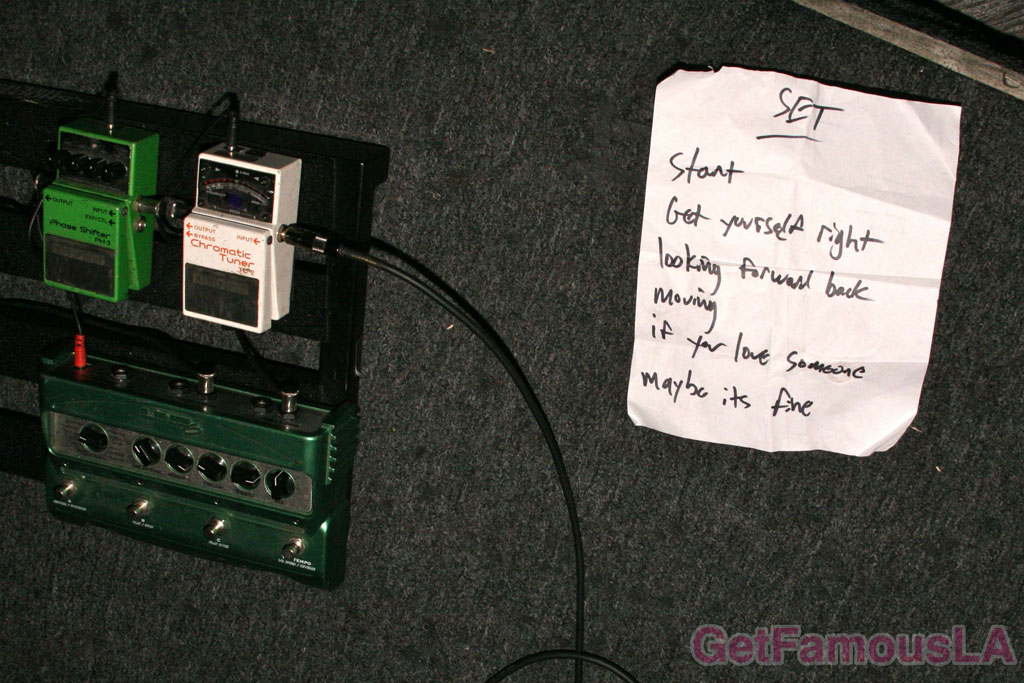 SET
Start
Get yourself right
looking forward back
moving
if you love someone
maybe its fine
← OUTPUT
INPUT ←
EXP/CTL ←
Phase Shifter
PH-3
← OUTPUT
← BYPASS
INPUT ←
Chromatic
Tuner
A
B
C
TEMPO
GetFamousLA